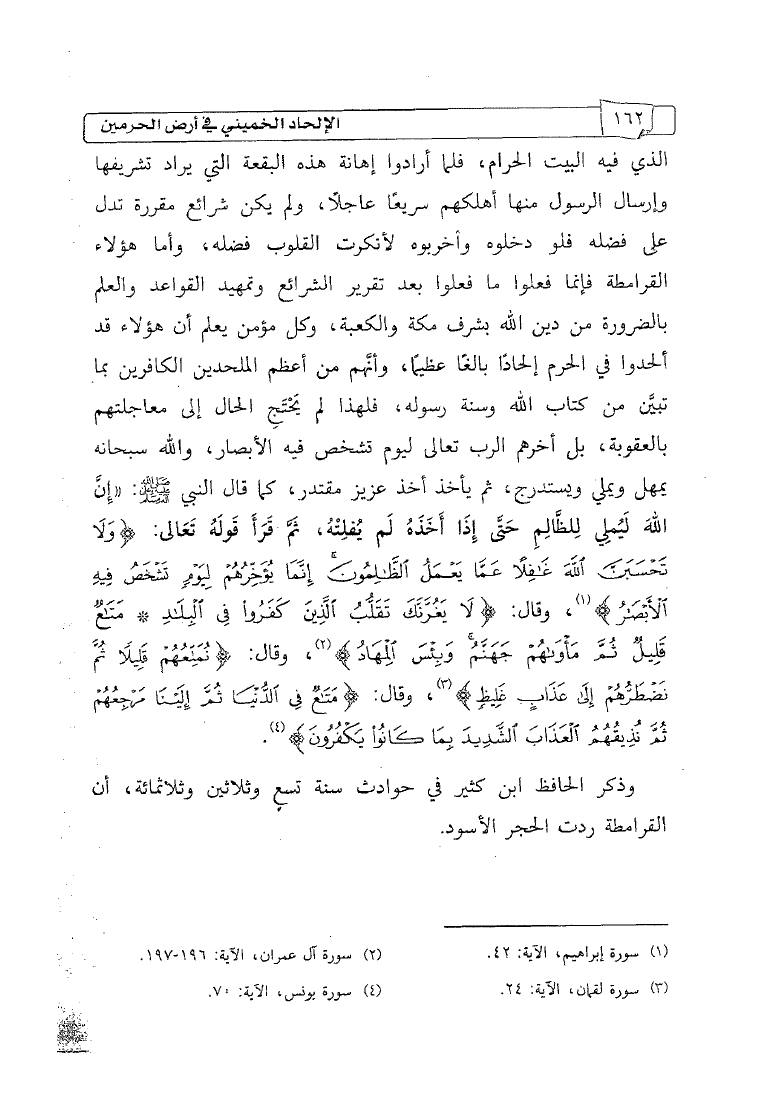 ١٦٢
الإلحاد الخميني في أرض الحرمين
الذي فيه البيت الحرام، فلما أرادوا إهانة هذه البقعة التي يراد تشريفها
وإرسال الرسول منها أهلكهم سريعًا عاجلًا، ولم يكن شرائع مقررة تدل
على فضله فلو دخلوه وأخربوه لأنكرت القلوب فضله، وأما هؤلاء
القرامطة فإنما فعلوا ما فعلوا بعد تقرير الشرائع وتمهيد القواعد والعلم
بالضرورة من دين الله بشرف مكة والكعبة، وكل مؤمن يعلم أن هؤلاء قد
ألحدوا في الحرم إلحادًا بالغًا عظيمًا، وأنَّهم من أعظم الملحدين الكافرين بما
تبيَّن من كتاب الله وسنة رسوله، فلهذا لم يَحْتَجِ الحال إلى معاجلتهم
بالعقوبة، بل أخرهم الرب تعالى ليوم تشخص فيه الأبصار، والله سبحانه
يمهل ويملي ويستدرج، ثم يأخذ أخذ عزيز مقتدر، كما قال النبي ﷺ: «إِنَّ
اللهَ لَيُمْلِي لِلظَّالِمِ حَتَّى إِذَا أَخَذَهُ لَم يُفْلِتْهُ، ثُمَّ قَرَأَ قَوْلَهُ تَعَالَى: ﴿وَلَا
تَحْسَبَنَّ ٱللَّهَ غَٰفِلًا عَمَّا يَعْمَلُ ٱلظَّٰلِمُونَۚ إِنَّمَا يُؤَخِّرُهُمْ لِيَوْمٍ تَشْخَصُ فِيهِ
ٱلْأَبْصَٰرُ﴾(١)، وقال: ﴿لَا يَغُرَّنَّكَ تَقَلُّبُ ٱلَّذِينَ كَفَرُوا۟ فِى ٱلْبِلَٰدِ * مَتَٰعٌ
قَلِيلٌ ثُمَّ مَأْوَىٰهُمْ جَهَنَّمُۚ وَبِئْسَ ٱلْمِهَادُ﴾(٢)، وقال: ﴿نُمَتِّعُهُمْ قَلِيلًا ثُمَّ
نَضْطَرُّهُمْ إِلَىٰ عَذَابٍ غَلِيظٍ﴾(٣)، وقال: ﴿مَتَٰعٌ فِى ٱلدُّنْيَا ثُمَّ إِلَيْنَا مَرْجِعُهُمْ
ثُمَّ نُذِيقُهُمُ ٱلْعَذَابَ ٱلشَّدِيدَ بِمَا كَانُوا۟ يَكْفُرُونَ﴾(٤).
وذكر الحافظ ابن كثير في حوادث سنة تسعٍ وثلاثين وثلاثمائة، أن
القرامطة ردت الحجر الأسود.
(١) سورة إبراهيم، الآية: ٤٢.
(٢) سورة آل عمران، الآية: ١٩٦-١٩٧.
(٣) سورة لقمان، الآية: ٢٤.
(٤) سورة يونس، الآية: ٧٠.